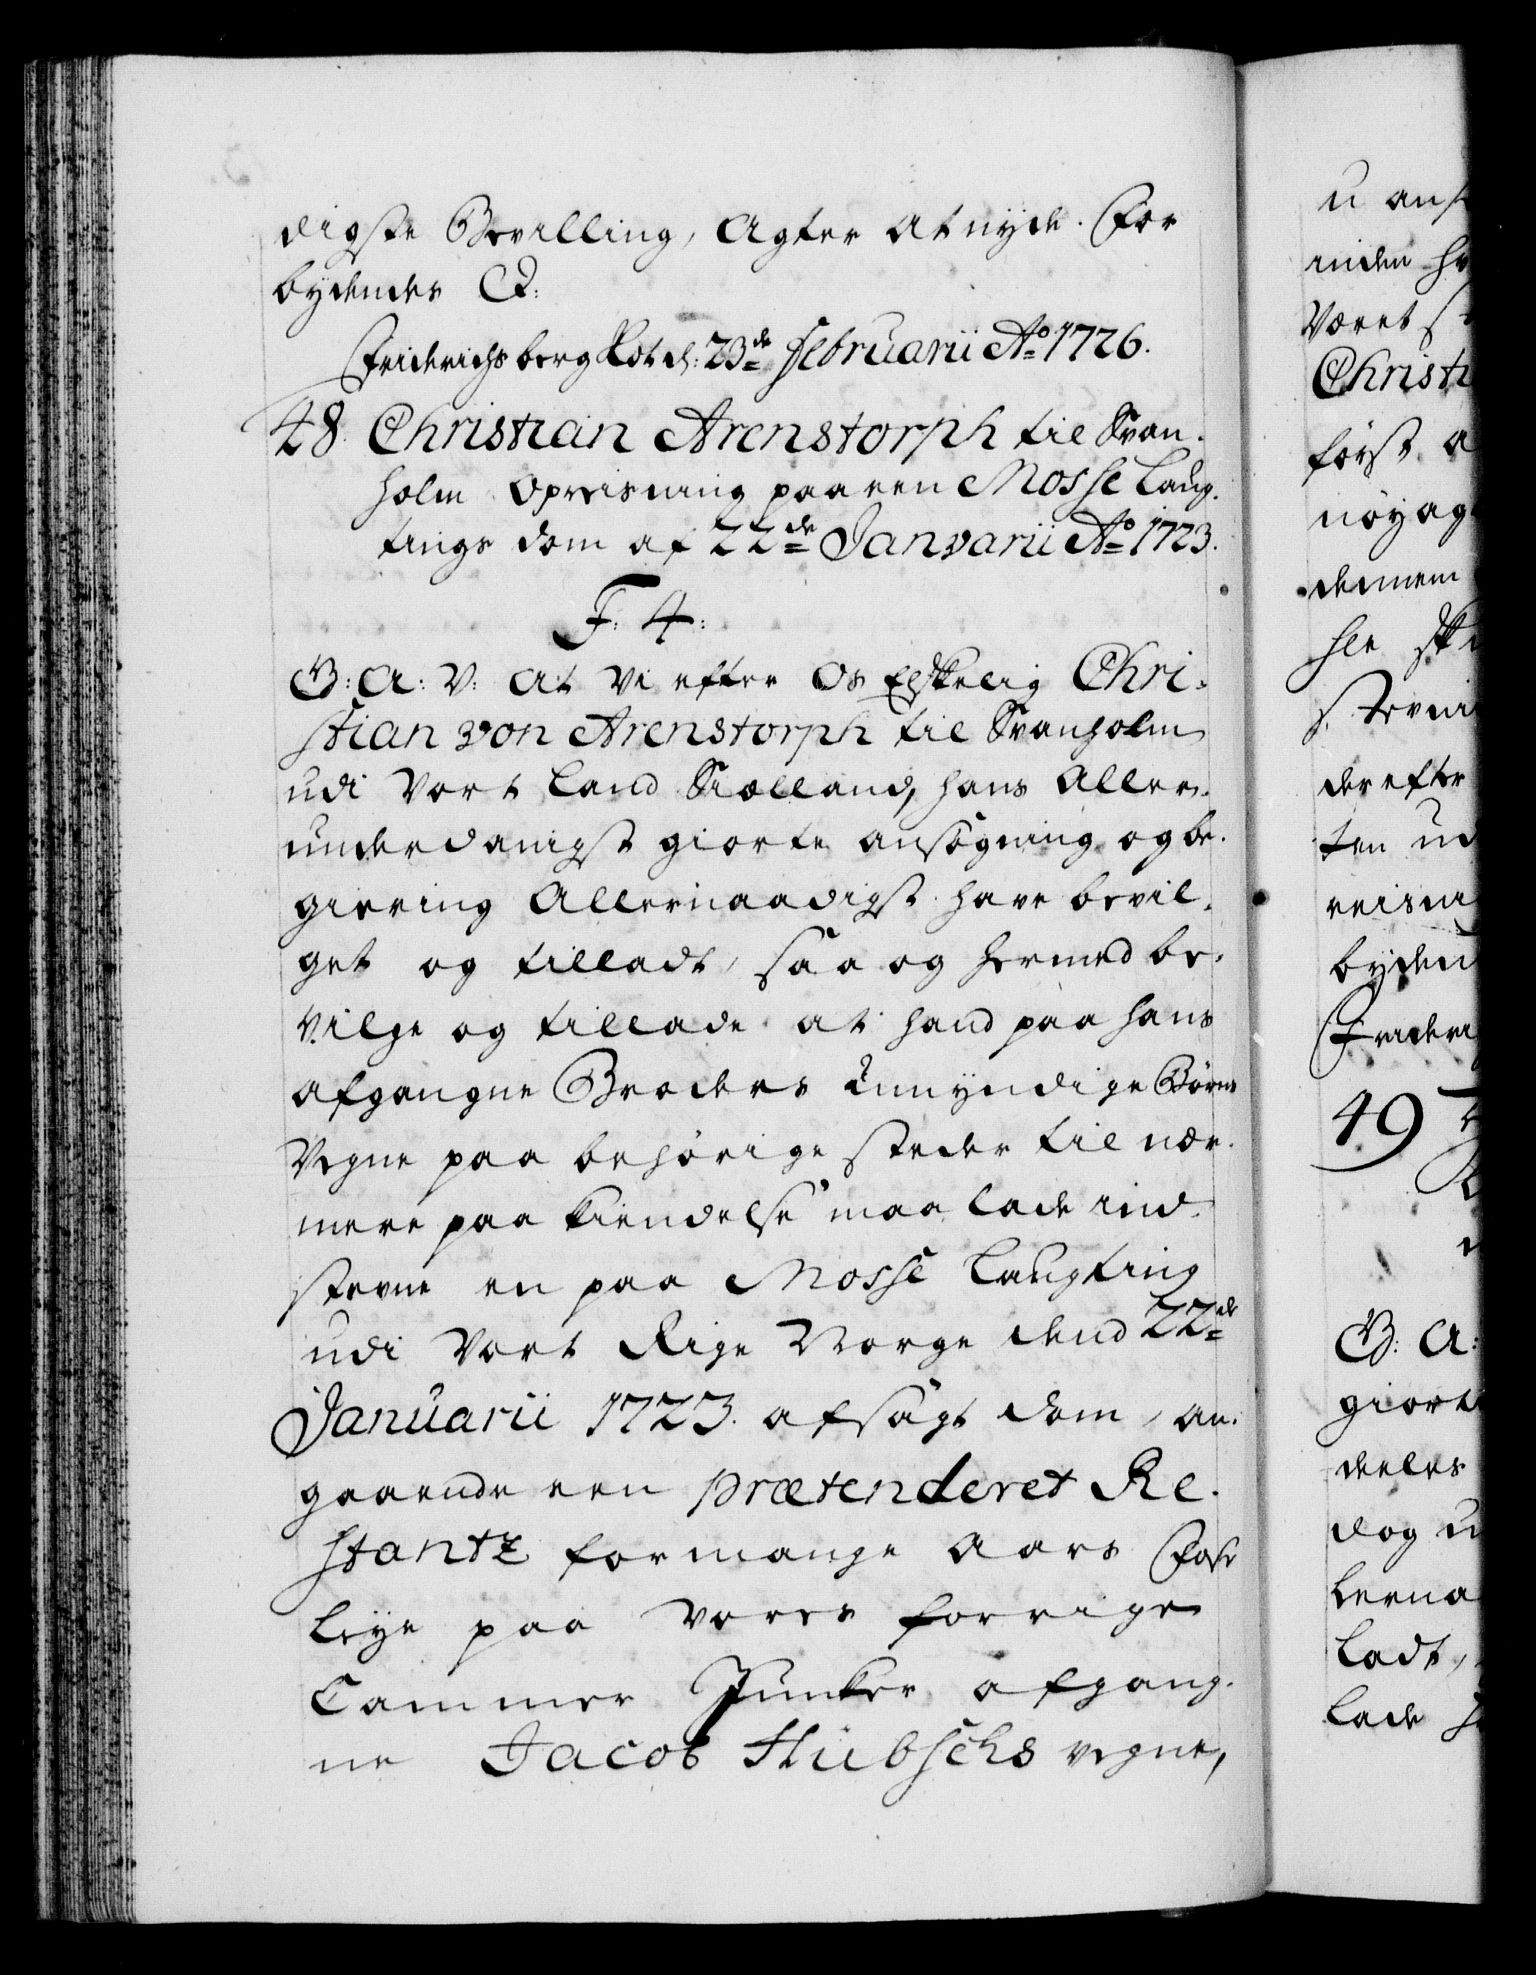 digste Bevilling, Agter at nyde. For
bydendes &:
Friderichsberg Slot d: 23de Februarii Ao 1726.
48. Christian Arenstorph til Svan-
holm Opreisning paa een Mosse Laug-
tings dom af 22de Janvarii Ao 1723.
F: 4:
G: A: V: At Vi efter Os Elskelig Chri-
stian von Arenstorph til Svanholm
udi Vort Land Siælland, hans Aller-
underdanigst giorte ansøgning og be-
giering Allernaadigst have bevil-
get og tilladt, saa og hermed be-
vilge og tillade at hand paa hans
afgangne Broders Umyndige Børns
Vegne paa behørige steder til nær-
mere paakiendelse maa lade ind-
stevne en paa Mosse Laugting
udi Vort Rige Norge dend 22de
Januarii 1723. afsagt dom, an-
gaaende een prætenderet Re-
stantz for mange Aars
leye paa Vores forrige
Cammer Juncker afgang-
ne Jacob Hübschs vegne,
u ans
inden
Været
Christi
først
nøyag
dennem
derefter
ten
byden
Frideri
49
G: A:
giort
deeles
dog
lerna
ladt,
lade